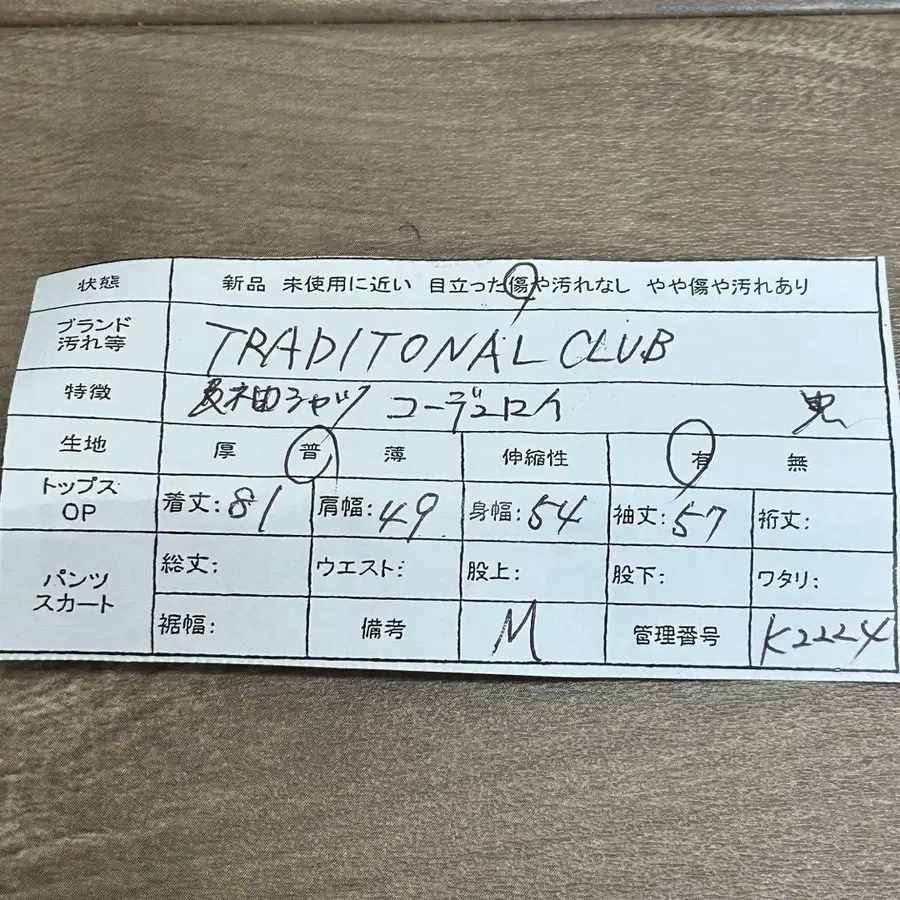 状態 新品 未使用に近い 目立った傷や汚れなし やや傷や汚れあり
ブランド
汚れ等 TRADITONAL CLUB
特徴 長袖シャツ コーデュロイ
生地 厚 普 薄 伸縮性 有 無
トップス
OP 着丈:81 肩幅:49 身幅:54 袖丈:57 裄丈:
パンツ
スカート 総丈: ウエスト: 股上: 股下: ワタリ:
裾幅: 備考 M 管理番号 K2224